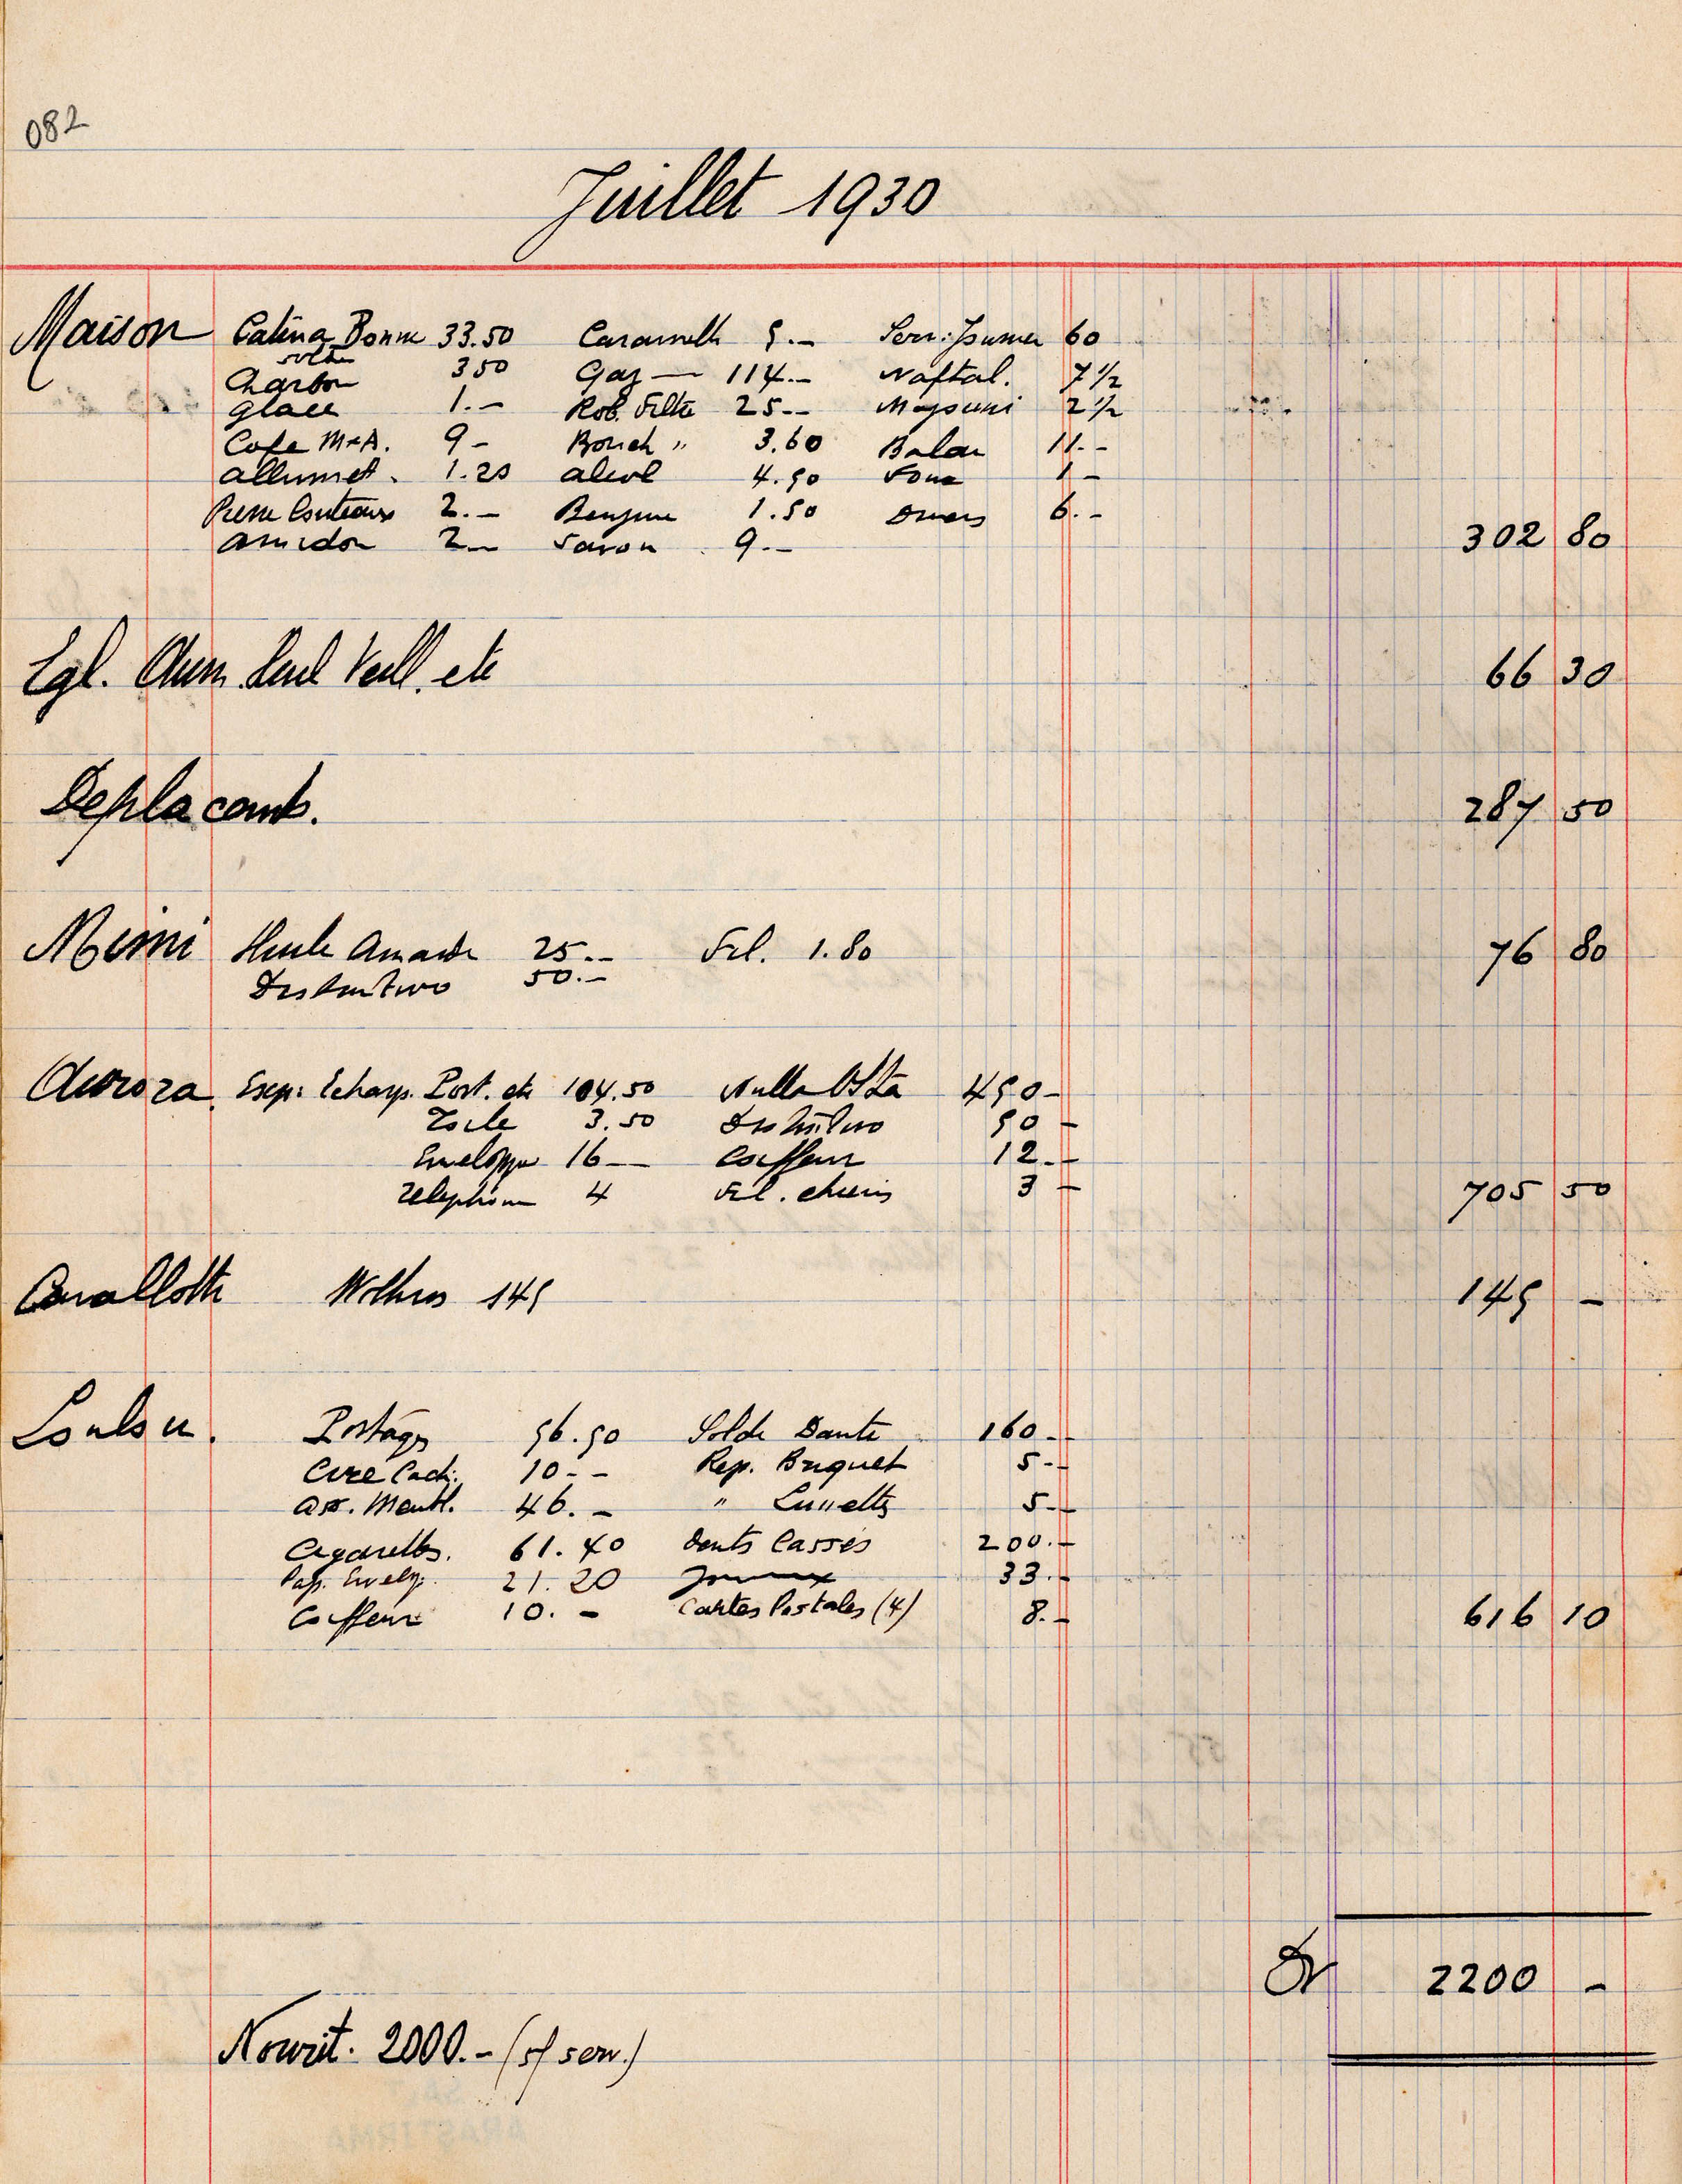 082
Juillet 1930
Maison Catina Bonne 33.50 Caramells 5.– Serr: 60
solde
Charbon 3 50 Gaz — 114.– Naftal. 7 1/2
Glace 1.– Rob. Filte 25.– 2 1/2
Cafe M+A. 9 – Bouch " 3.60 Balai 11.–
Allumet. 1.20 alcol 4.50 1 –
Pierre Couteaux 2.– Benzine 1.50 Divers 6.–
Amidon 2.– Savon 9.– 302 80
Egl. Aum. etc 66 30
Deplacemts. 287 50
Mimi Huile Amande 25.– Fil. 1.80 76 80
Distintivo 50.–
Aurora Exp: Echarp. Post. etc 104.50 Nulla Osta 450 –
Toile 3.50 Distintivo 50 –
Enveloppe 16 — Coiffeur 12.–
Telephone 4 Fil. 3 – 705 50
145 145 –
Loulou. Postages 56.50 Solde Dante 160 –
Cire Cach. 10 – – Rep. Briquet 5 –
Ass. Meubl. 46. – " Lunettes 5 –
Cigarettes. 61.40 dents Cassés 200.–
Pap. Envelp. 21.20 33.–
Coiffeur 10. – Cartes Postales (4) 8.– 616 10
2200 –
Nourrit. 2000.– (s/ serv.)